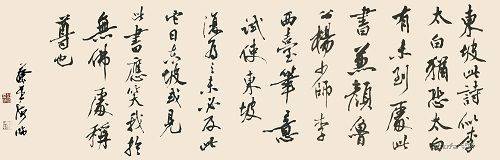 東坡此詩似李
太白猶恐太白
有未到處此
書兼顏魯
公楊少師李
西臺筆意
試使東坡
復為之未必及此
它日東坡或見
此書應笑我於
無佛處稱
尊也